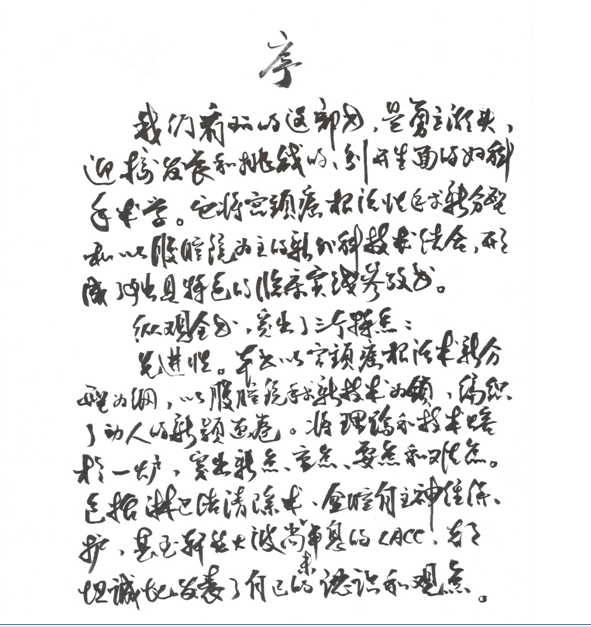 序
我们看到的这部书,是勇立潮头,
迎接发展和挑战的、别开生面的妇科
手术学。它将宫颈癌根治性手术新分型
和以腹腔镜为主的新外科技术结合,形
成了独具特色的临床实践参考书。
纵观全书,突出了三个特点:
先进性。本书以宫颈癌根治术新分
型为纲,以腹腔镜手术新技术为领,编织
了动人的新颖画卷。将理论和技术熔
于一炉,突出新点、重点、要点和难点。
包括淋巴结清除术、盆腔自主神经保
护,甚至轩然大波尚未平息的LACC,都
坦诚地发表了自己的认识和观点。